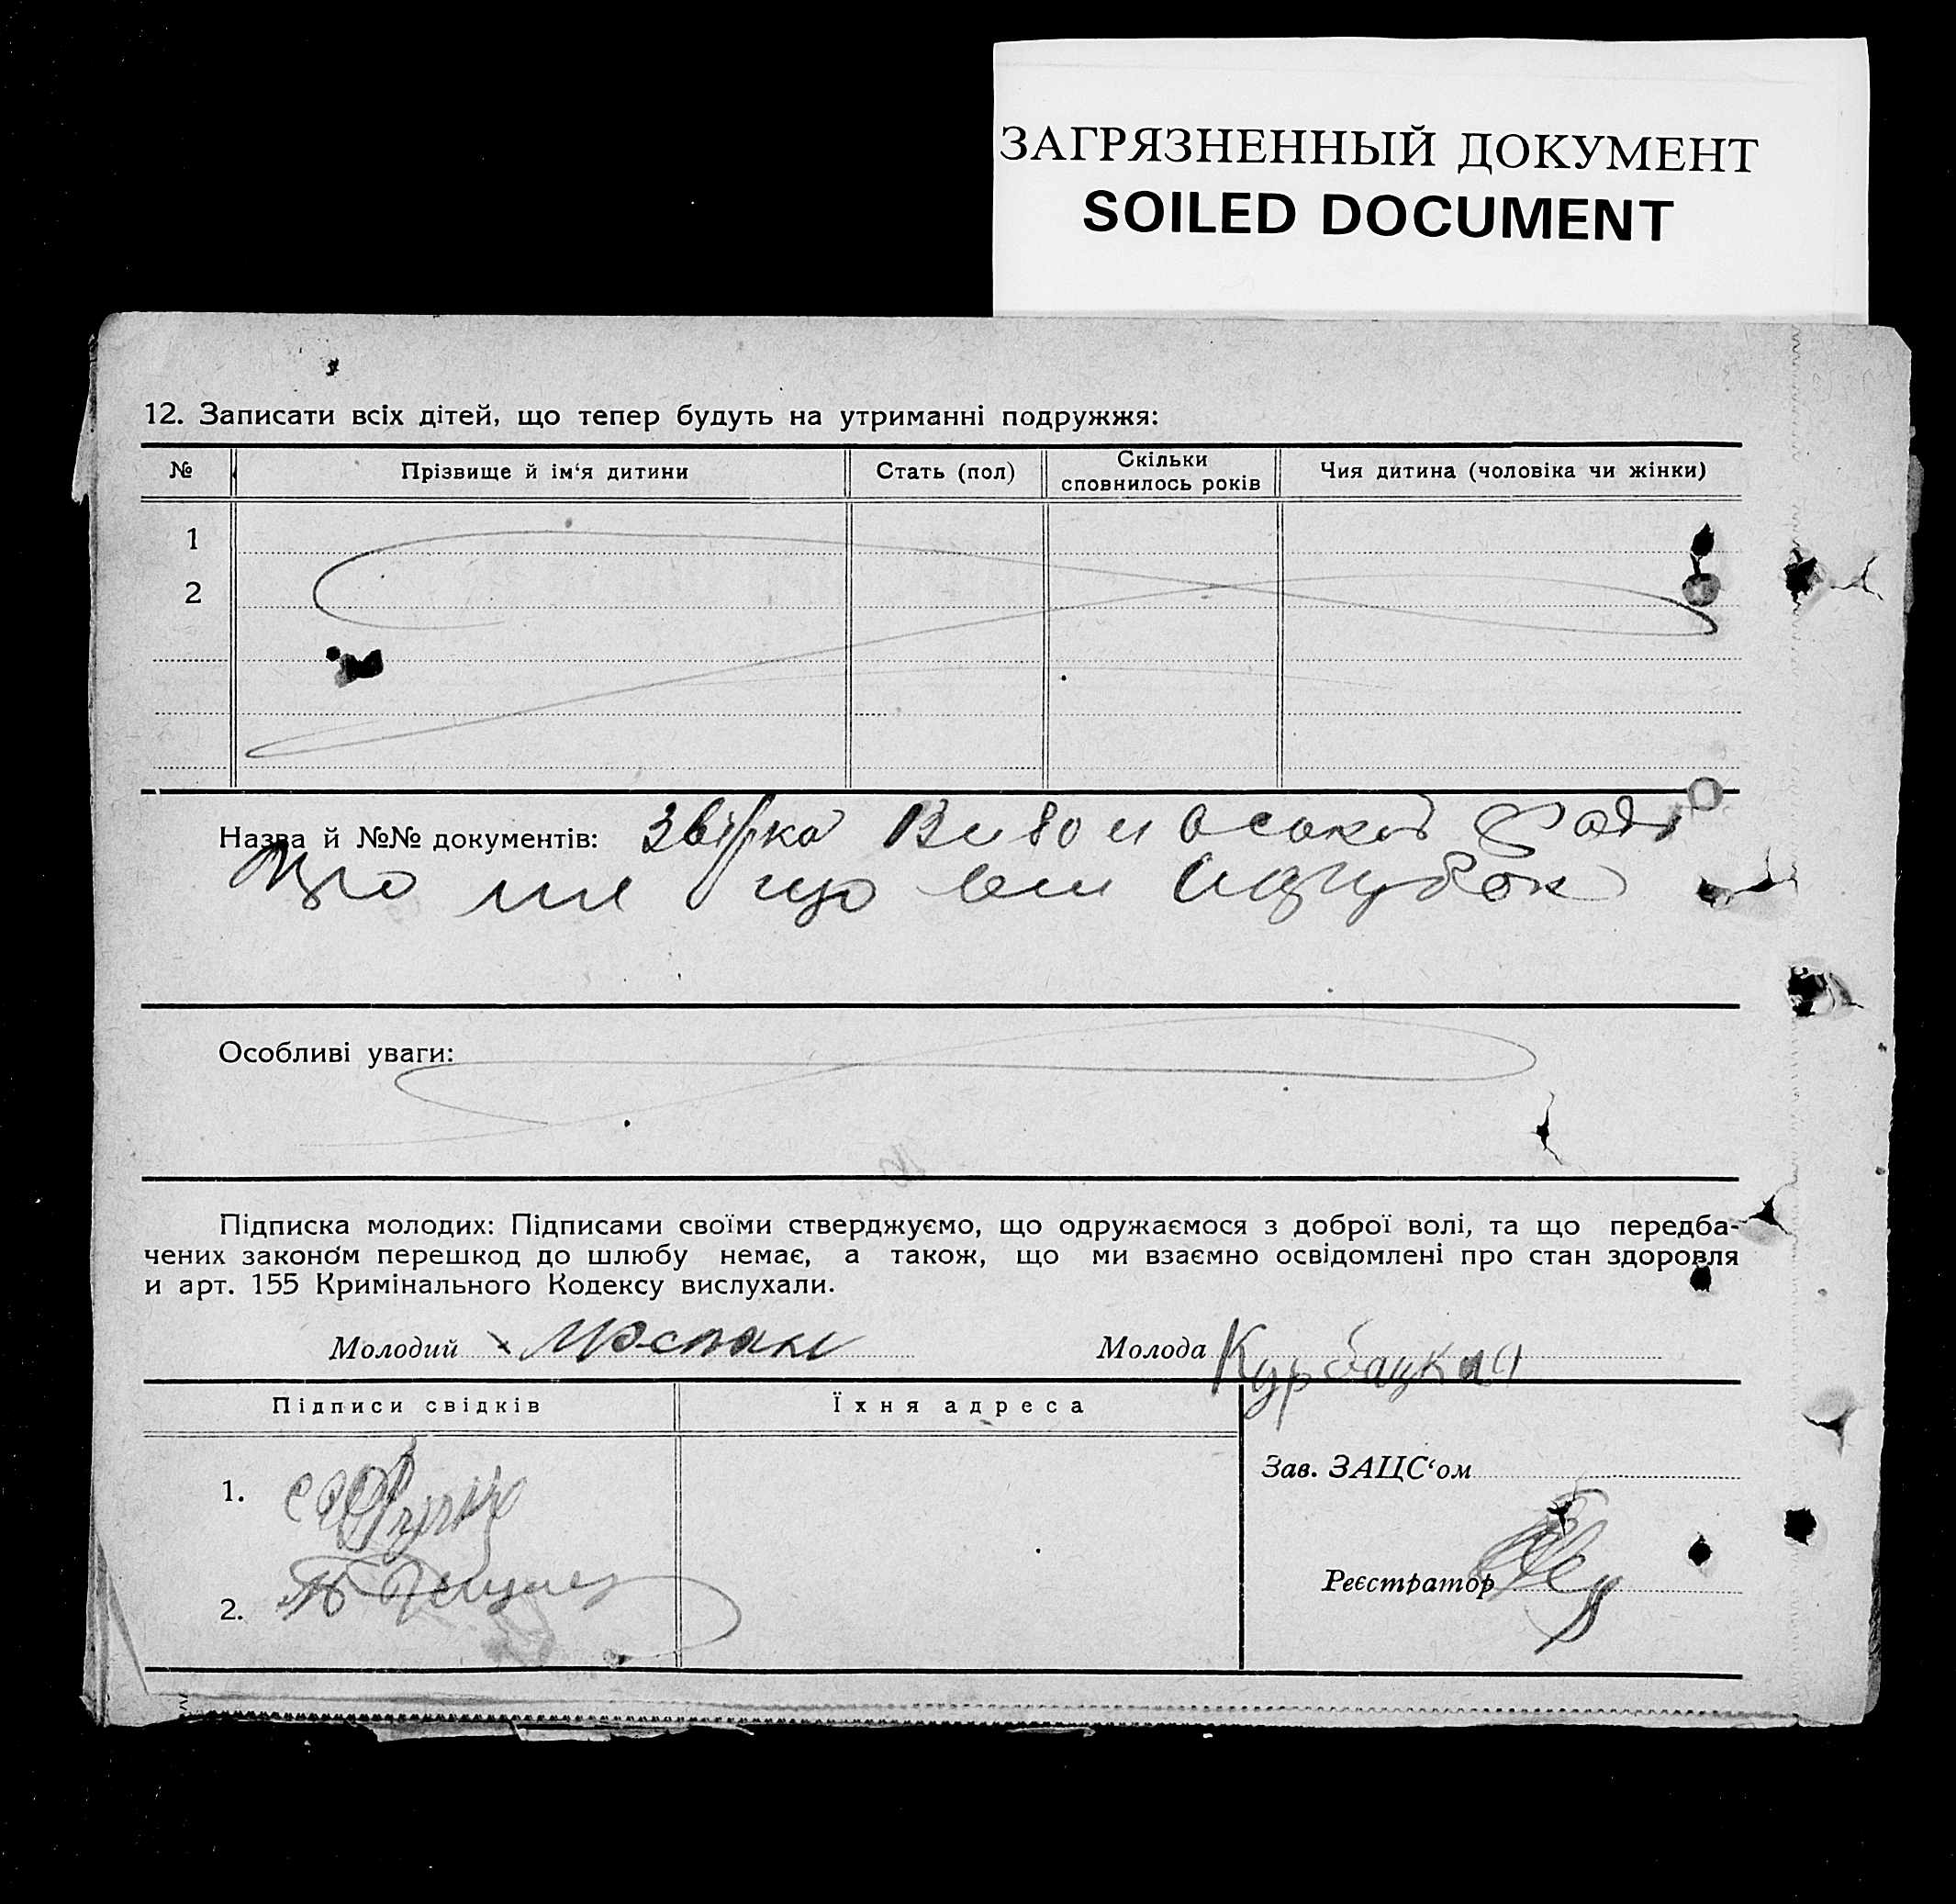 ЗАГРЯЗНЕННЫЙ ДОКУМЕНТ
SOILED DOCUMENT
12. Записати всіх дітей, що тепер будуть на утриманні подружжя:
№ Прізвище й ім‘я дитини Стать (пол) Скільки сповнилось років Чия дитина (чоловіка чи жінки)
1
2
Назва й №№ документів:
що
Особливі уваги:
Підписка молодих: Підписами своїми стверджуємо, що одружаємося з доброї волі, та що передба-
чених законом перешкод до шлюбу немає, а також, що ми взаємно освідомлені про стан здоровля
и арт. 155 Кримінального Кодексу вислухали.
Молодий Молода Курбацкая
Підписи свідків Їхня адреса
Зав. ЗАЦС‘ом
1.
Реєстратор
2.